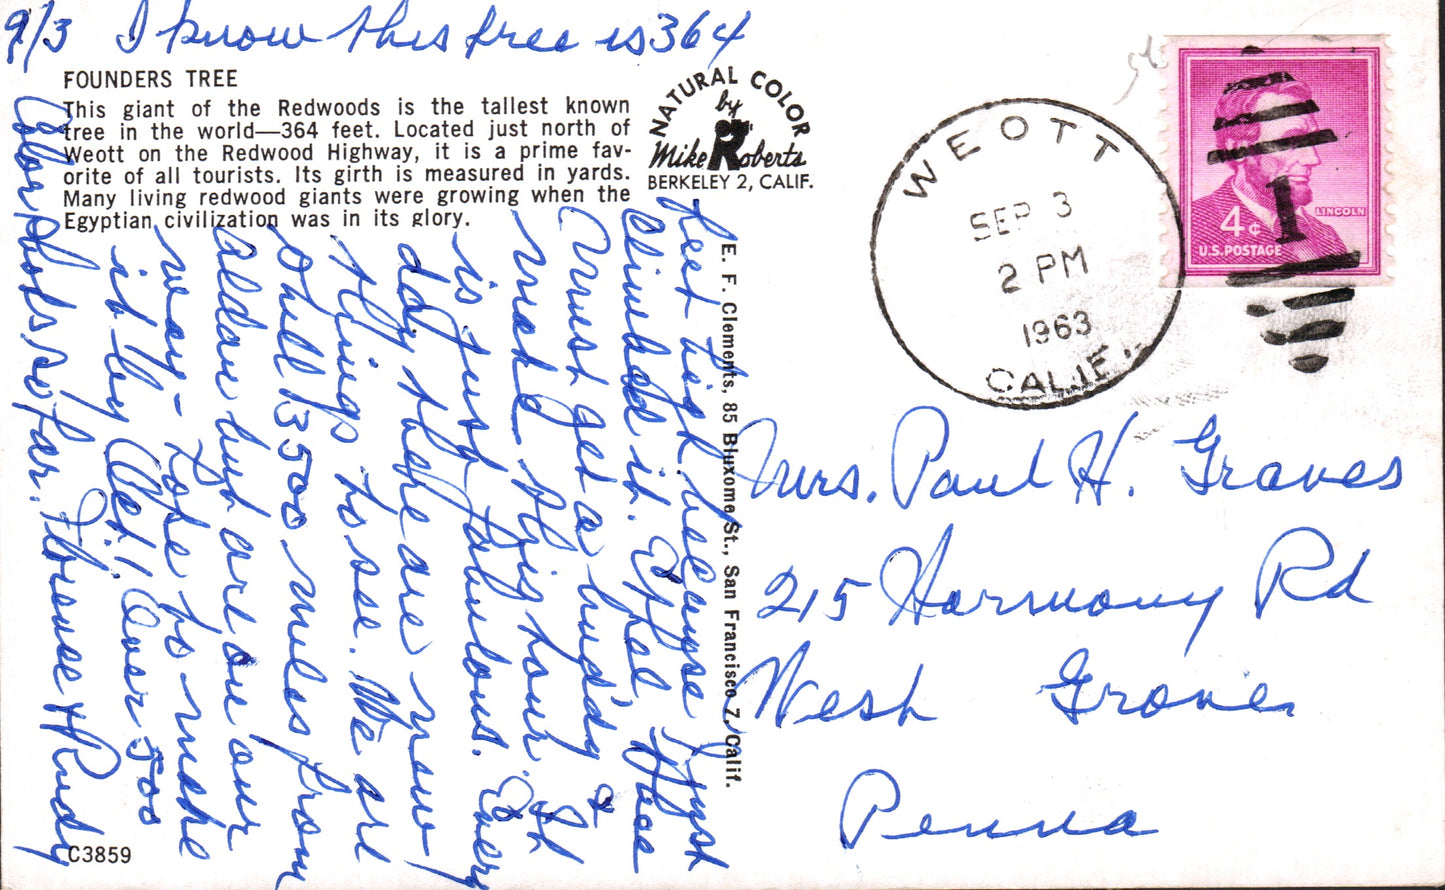 9/3 I know this tree is 364
feet high because I just
climbed it. Ethel & Hoae
must get a bud'dy &
make this tour. It
is just fabulous. Every
day there are new
things to see. We are
still 3500 miles from
Aldan but are on our
way - Hope to make
it by Oct! Over 500
color photos so far. Florence & Rudy
FOUNDERS TREE
This giant of the Redwoods is the tallest known
tree in the world—364 feet. Located just north of
Weott on the Redwood Highway, it is a prime fav-
orite of all tourists. Its girth is measured in yards.
Many living redwood giants were growing when the
Egyptian civilization was in its glory.
C3859
NATURAL COLOR
by
Mike Roberts
BERKELEY 2, CALIF.
E. F. Clements, 85 Bluxome St., San Francisco 7, Calif.
WEOTT
SEP 3
2 PM
1963
CALIF.
1
4¢
LINCOLN
U.S. POSTAGE
Mrs. Paul H. Graves
215 Harmony Rd
West Grove
Penna